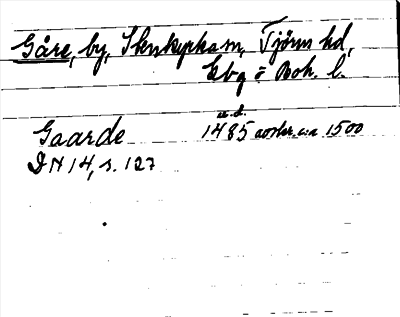 Gåre, by, Stenkyrka sn, Tjörns hd,
Gbg o Boh. l.
u. d.
Gaarde 1485 avskr. ca 1500
DN 14, s. 127